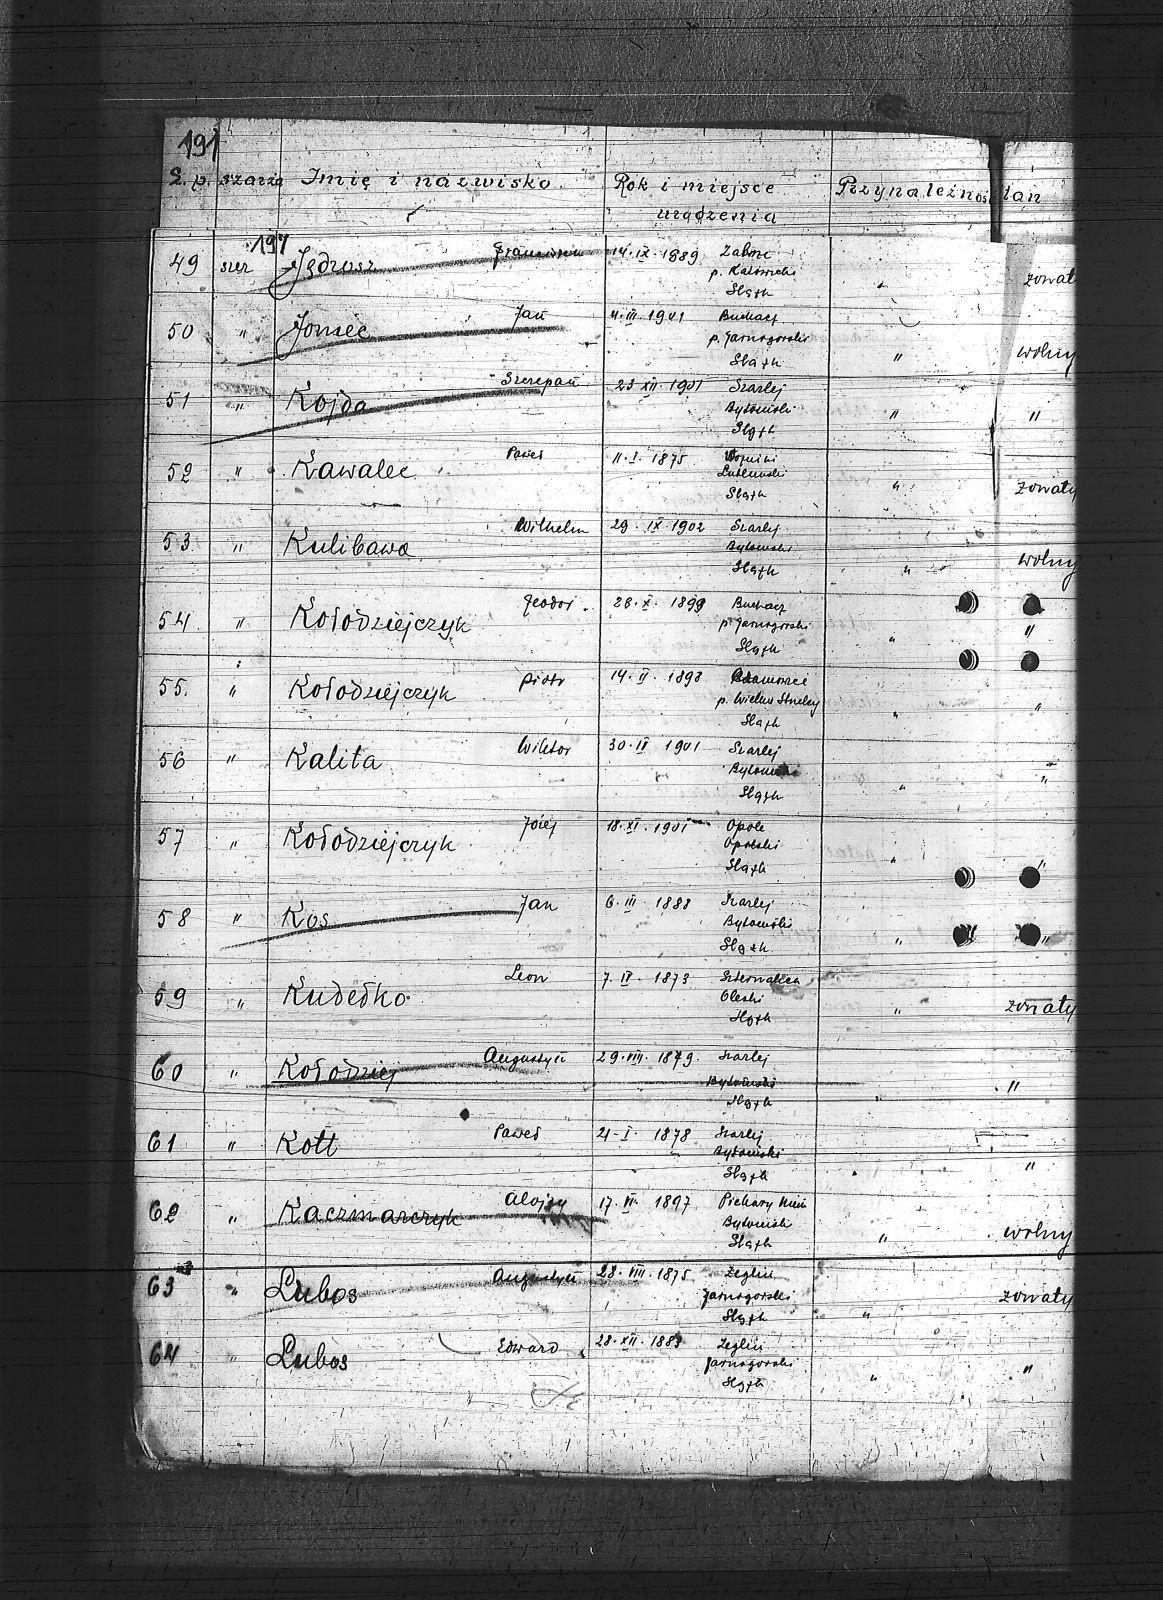 191
L.p. szarża Imię i nazwisko Rok i miejsce urądzenia Przynależnoś stan
197
49 szer Jędrosz Franciszek 14.IX.1889 Zabrze zonat
p. Katowicki
Śląsk "
50 " Joniec Jan 4.III.1901 Buchacz wolny
p. Tarnogorski
Śląsk "
51 " Kojda Szczepan 23 XII.1901 Szarlej "
Bytomski
Śląsk "
52 " Kawalec Paweł 11.I.1875 zonaty
Lubliniecki
Śląsk "
53 " Kulibawa Wilhelm 29.IX 1902 Szarlej wolny
Bytomski
Śląsk "
54 " Kołodziejczyk Teodor 28.X.1899 Buchacz "
p. Tarnogorski
Śląsk "
55. " Kołodziejczyk Piotr 14.II.1898 "
p. Wielkie Strzelcy
Śląsk "
56 " Kalita Wiktor 30.IV 1901 Szarlej "
Bytomski
Śląsk "
57 " Kołodziejczyk Józef 18.XI.1901 Opole "
Opolski
Śląsk "
58 " Kos Jan 6.III.1888 Szarlej "
Bytomski
Śląsk "
59 " Kudełko Leon 7.IV.1873 Sternalica zonaty
Oleski
Śląsk "
60 " Kołodziej Augustyn 29.VIII.1879. Szarlej "
Bytomski
Śląsk "
61 " Kott Paweł 21.I.1878 Szarlej "
Bytomski
Śląsk
62 " Kaczmarczyk Alojzy 17.VI.1897 Piekary Niem wolny
Bytomski
Śląsk "
63 " Lubos Augustyn 28.VIII.1875 Zeglin zonaty
Tarnogorski
Śląsk "
64 " Lubos Edward 28.XII.1883 Zeglin "
Tarnogorski
Śląsk "